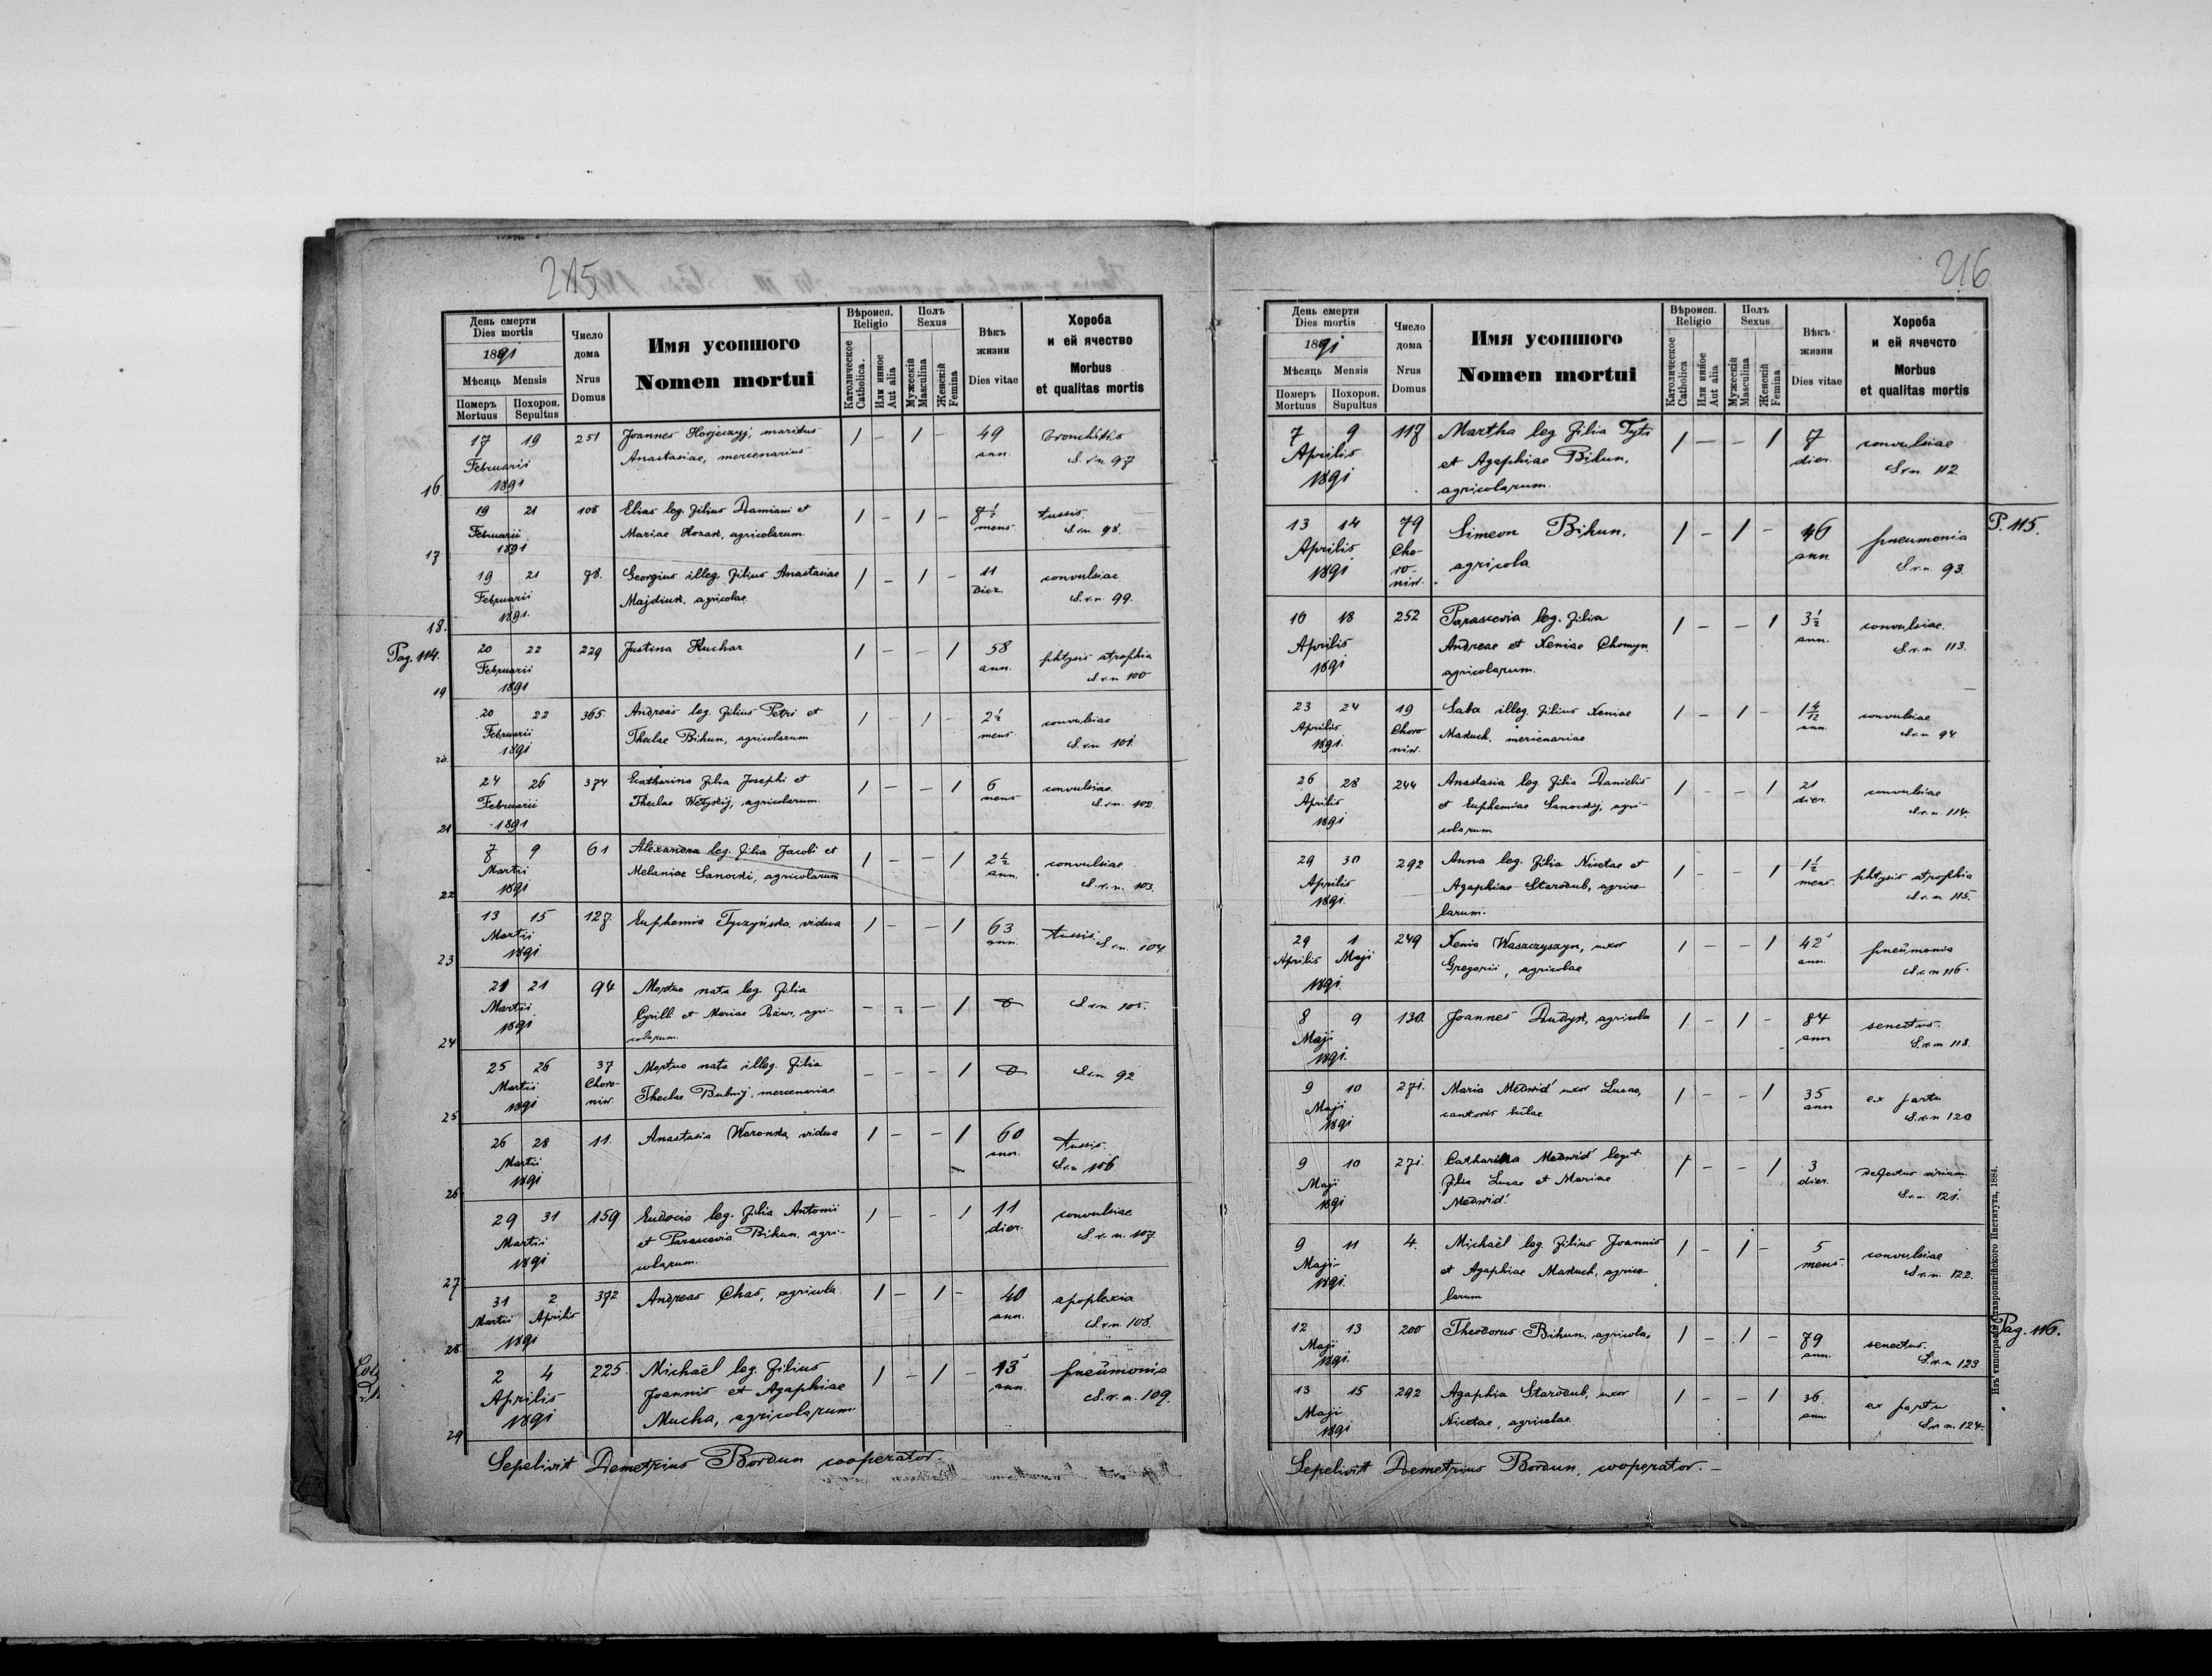 215
День смерти
Dies mortis
1891
Мѣсяць Mensis
Померъ Похорон.
Mortuus Sepultus
Число
дома
Nrus
Domus
Имя усопшого
Nomen mortui
Вѣроисп.
Religio
Католическое
Catholica.
Или инное
Aut alia
Полъ
Sexus
Мужескій
Masculina
Женскій
Femina
Вѣкъ
жизни
Dies vitae
Хороба
и ей ячество
Morbus
et qualitas mortis
16
17 19 251 Joannes maritus / - / - 49 bronchitis
Februarii Anastasiae, mercenarius ann. S.r.n. 97
1891
17
19 21 108 Elias leg. filius Damiani et / - / - 7 1/2 tussis
Februarii Mariae Kozak, agricolarum mens. S.r.n. 98.
1891
18.
19 21 78. Georgius illeg. filius Anastasiae / - / - 11 convulsiae
Februarii Majdiuk, agricolae dier. S.r.n. 99.
1891.
Pag. 114.
19
20 22 229 Justina Kuchar / - - / 58 phtysis atrophia
Februarii ann. S.r.n 100
1891
20.
20 22 365. Andreas leg. filius Petri et / - / - 2 1/2 convulsiae
Februarii Theclae Bihun, agricolarum mens S.r.n 101.
1891
21
24 26 374 Catharina filia Josephi et / - - / 6 convulsiae
Februarii Theclae agricolarum. mens S.r.n. 102.
1891
22
7 9 61 Alexandra leg. filia Jacobi et / - - / 2 1/2 convulsiae
Martii Melaniae Sanocki, agricolarum ann. S.r.n. 103.
1891
23
13 15 127. Euphemia Tyczyńska, vidua / - - / 63 tussis.
Martii ann. S.r.n. 104
1891
24
21 21 94 Mortuo nata leg. filia - - - /
Martii Cyrilli et Mariae agri- S.r.n. 105.
1891 colarum.
25
25 26 37 Mortuo nata illeg. filia - - - / S.r.n 92
Martii Choro- Theclae Bubnij, mercenariae
1891 niw.
26
26 28 11. Anastasia Woronka, vidua / - - / 60 tussis.
Martii ann. S.r.n 106
1891
27
29 31 159 Eudocia leg. filia Antonii / - - / 11 convulsiae
Martii et Parascevia Bihun, agri- dier. S.r.n. 107
1891 colarum.
28
31 2 372 Andreas Chas, agricola / - / - 40 apoplexia
Martii Aprilis ann. S.r.n. 108.
1891
29
2 4 225. Michaël leg. filius / - / - 13 pneumonia
Aprilis Joannis et Agaphiae ann S.r.n. 109.
1891 Mucha, agricolarum
Sepelivit Demetrius Bordun cooperator.
216
День смерти
Dies mortis
1891
Мѣсяць Mensis
Померъ Похорон.
Mortuus Supultus
Число
дома
Nrus
Domus
Имя усопшого
Nomen mortui
Вѣроисп.
Religio
Католическое
Catholica
Или инное
Aut alia
Полъ
Sexus
Мужескій
Masculina
Женскій
Femina
Вѣкъ
жизни
Dies vitae
Хороба
и ей ячечсто
Morbus
et qualitas mortis
7 9 117 Martha leg filia Tyti / - - / 7 convulsiae
Aprilis et Agaphiae Bihun, dier. S.r.n. 112
1891 agricolarum.
P. 115.
13 14 79 Simeon Bihun, / - / - 46 pneumonia
Aprilis Cho- agricola ann S.r.n. 93.
1891 ro-
niw.
16 18 252 Parascevia leg. filia / - - / 3 1/2 convulsiae.
Aprilis Andreae et Xeniae Chomyn ann. S.r.n 113.
1891 agricolarum.
23 24 19 Saba illeg. filius Xeniae / - / - 1 4/12 convulsiae
Aprilis Choro Makuch, mercenariae ann. S.r.n 94.
1891. niw.
26 28 244 Anastasia leg. filia Danielis / - - / 21 convulsiae
Aprilis et Euphemiae Sanockij, agri- dier. S.r.n. 114.
1891 colarum
29 30 292 Anna leg. filia Nicetae et / - - / 1 1/2 phtysis atrophia
Aprilis Agaphiae Starodub, agrico- mens. S.r.n. 115.
1891. larum.
29 1 249 Xenia Waszczyszyn, uxor / - - / 42 pneumonia
Aprilis Maji Gregorii, agricolae ann. S.r.n 116.
1891.
8 9 130. Joannes Dudyk, agricola / - / - 84 senectus.
Maji ann S.r.n 118.
1891.
9 10 271. Maria Medwid' uxor Lucae, / - - / 35 ex partu
Maji cantoris ann S.r.n 120
1891
9 10 271. Catharina Medwid' legit / - - / 3 defectus virium.
Maji filia Lucae et Mariae dier. S.r.n. 121.
1891 Medwid'.
9 11 4. Michaël leg. filius Joannis / - / - 5 convulsiae
Maji et Agaphiae Makuch, agrico- mens. S.r.n. 122.
1891. larum
Pag. 116.
12 13 200 Theodorus Bihun, agricola, / - / - 79 senectus.
Maji ann. S.r.n 123
1891.
13 15 292 Agaphia Starodub, uxor / - - / 36. ex partu
Maji Nicetae, agricolae. ann S.r.n. 124.
1891
Sepelivit Demetrius Bordun, cooperator. -
Изъ типографіи Ставропигійского Института, 1884.